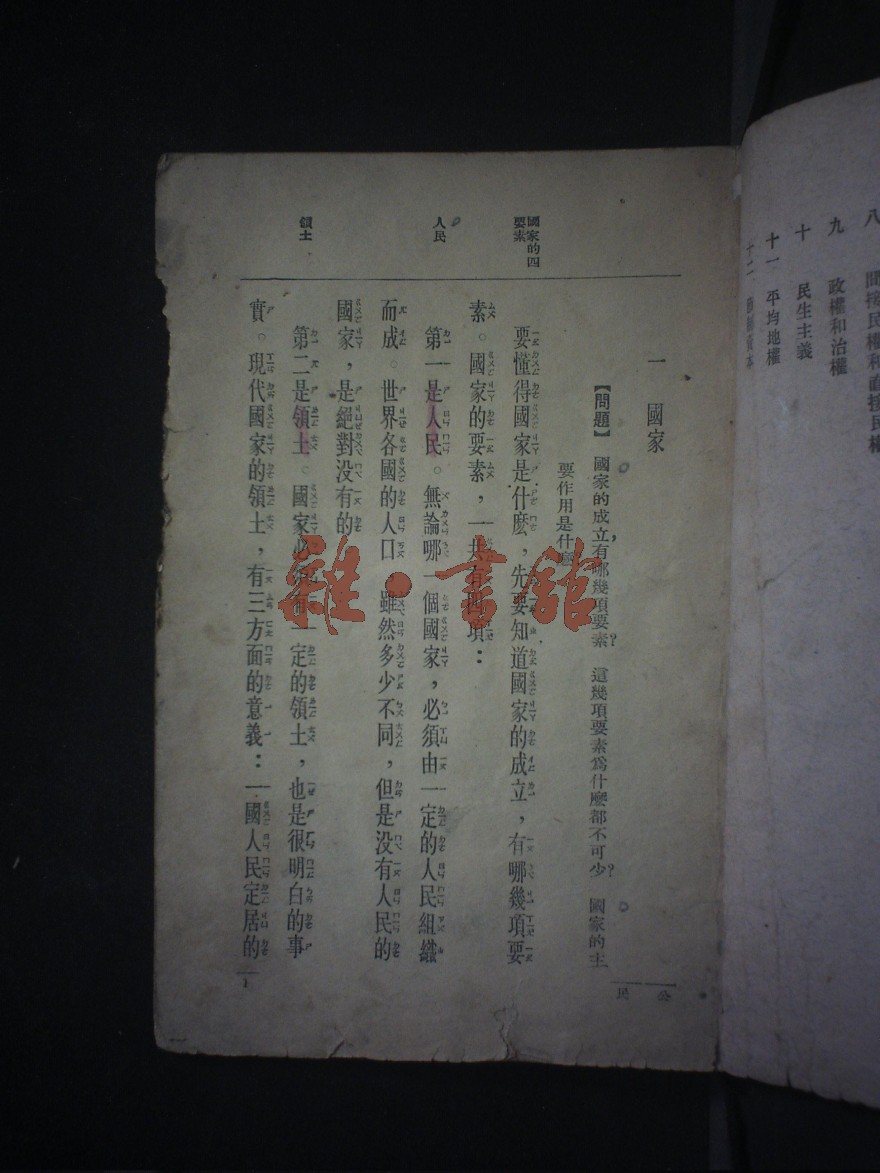 八　間接民權和直接民權
九　政權和治權
十　民生主義
十一　平均地權
十二　節制資本
一　國家
【問題】　國家的成立有哪幾項要素？　這幾項要素爲什麽都不可少？　國家的主
要作用是什麽
要懂得國家是什麽，先要知道國家的成立，有哪幾項要
素。國家的要素，一共有四項：
第一是人民。無論哪一個國家，必須由一定的人民組織
而成。世界各國的人口，雖然多少不同，但是没有人民的
國家，是絕對没有的
第二是領土。國家必須有一定的領土，也是很明白的事
實。現代國家的領土，有三方面的意義：一國人民定居的
國家的四
要素
人民
領土
公　民
1
雜·書館